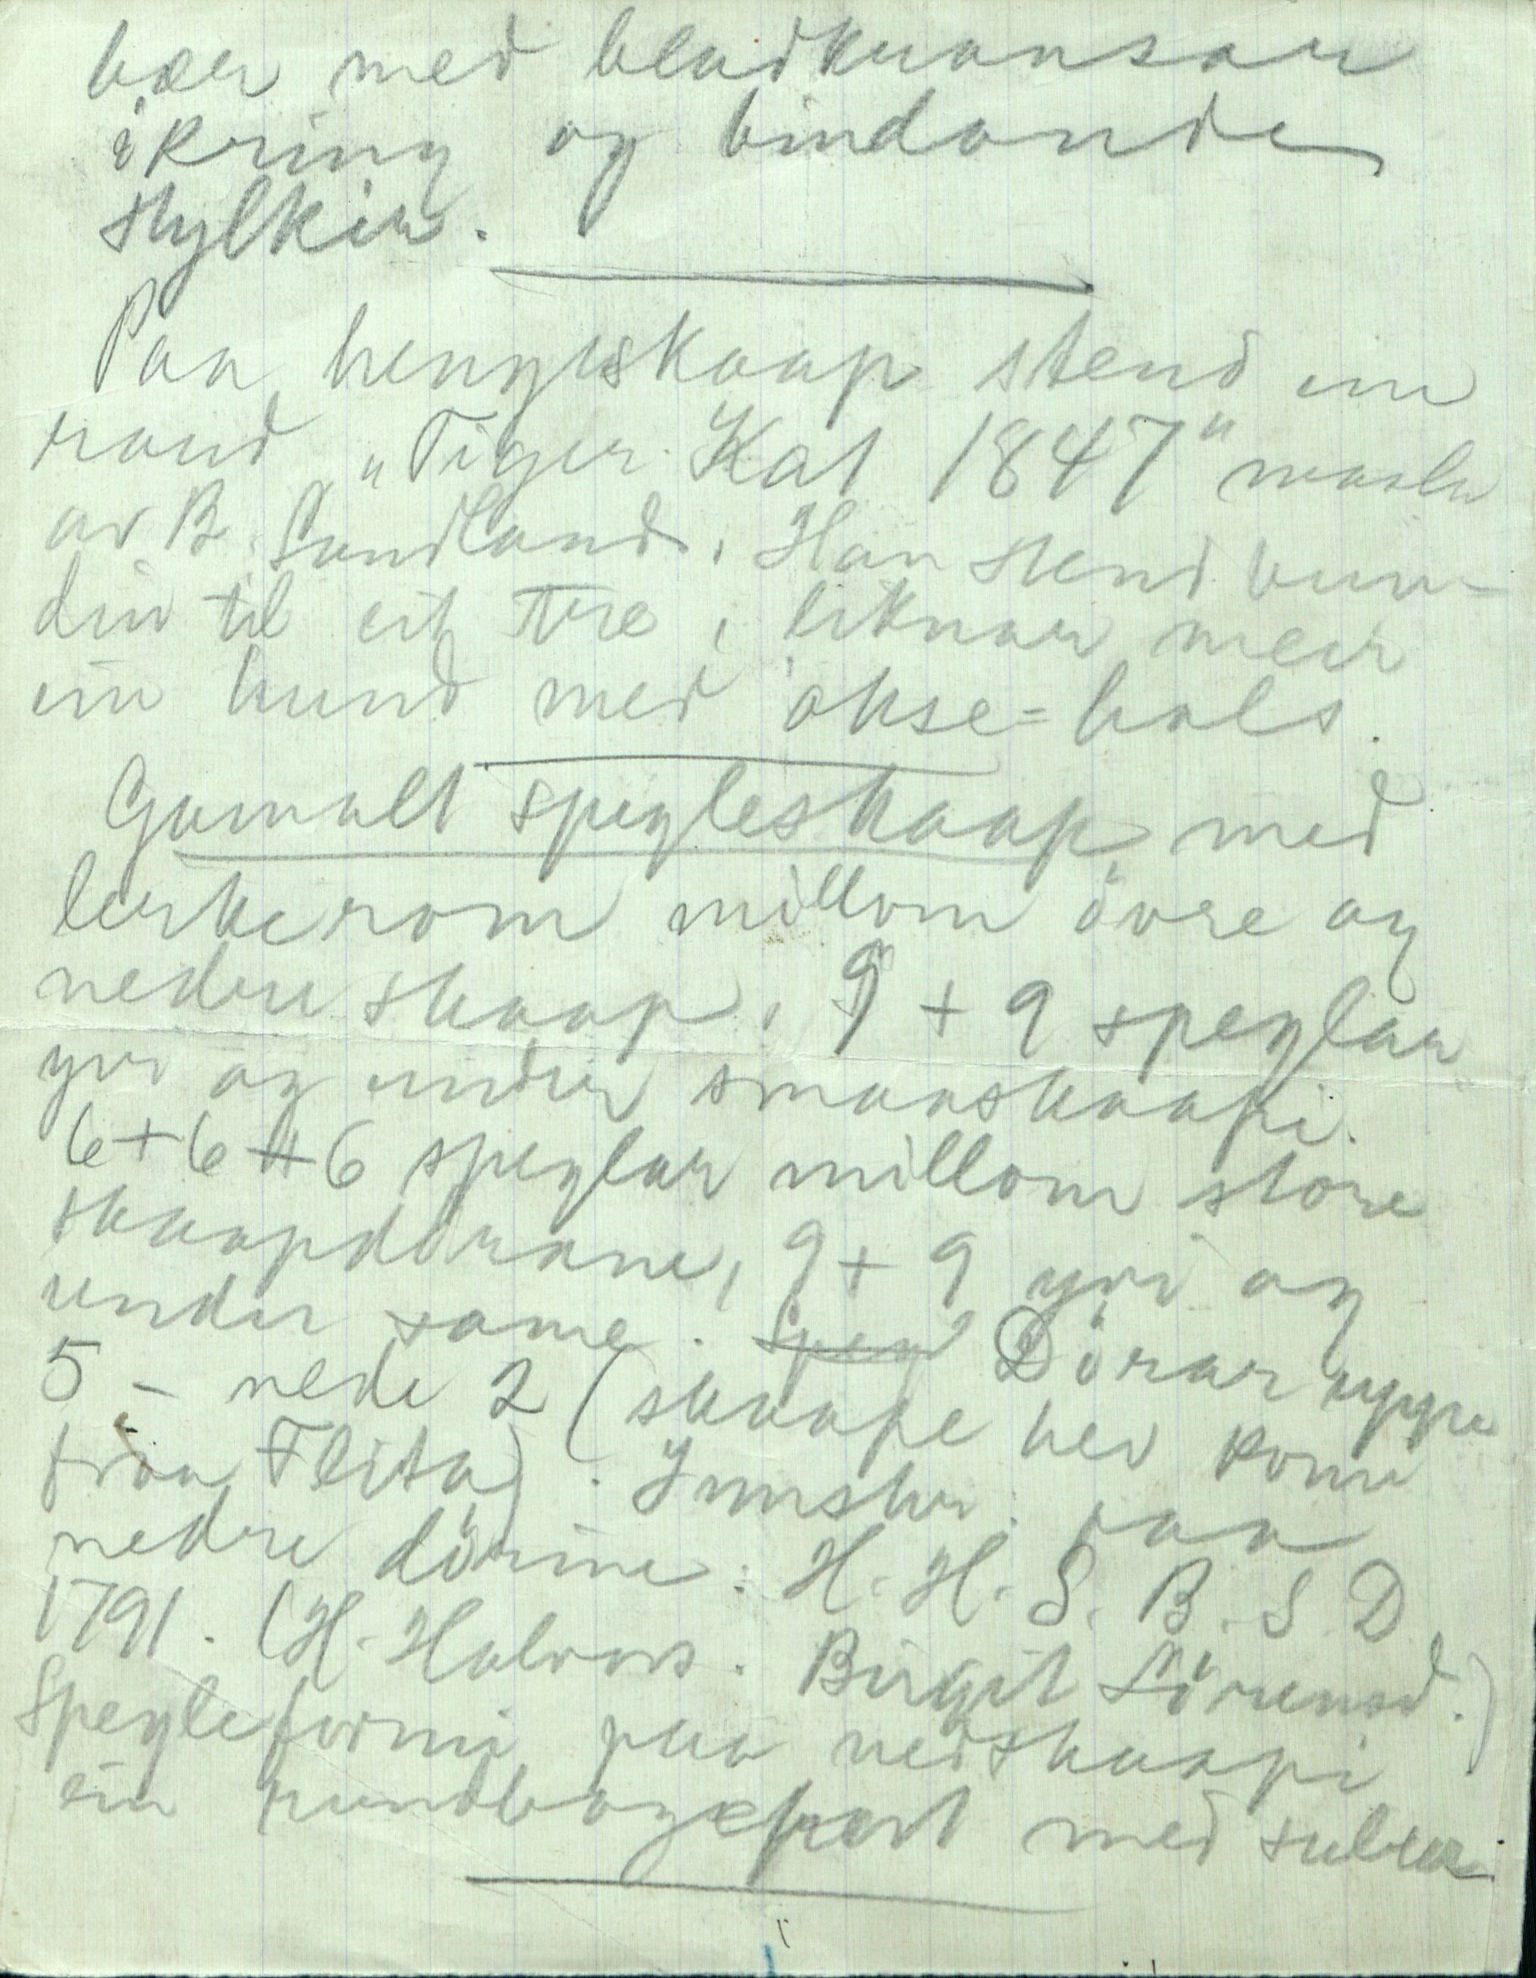 bær med bladkransar
ikring og bindande
stylkir.
Paa hengeskaap stend ein
raud „Tiger Kat 1847" maala
av B. Sundland. Han stend bun-
din til eit tre, liknar meir
ein hund med okse=hals.
Gamalt spegleskaap med
lerkerom millom övre og
nedre skaap, 9 + 9 speglar
yvi og under smaaskaapi.
6+6+6 speglar millom store
skaapdörane, 9 + 9 yvi og
under same. Speg Dörar uppe
5 - nede 2 (skaape hev kome
fraa Flita). Innskr. paa
nedre dörine: H. H. S. B. S D.
1791. (H. Halvors. Birgit Sörensd.)
Spegleformi paa nedskaapi
ein rundbogeport med sulur